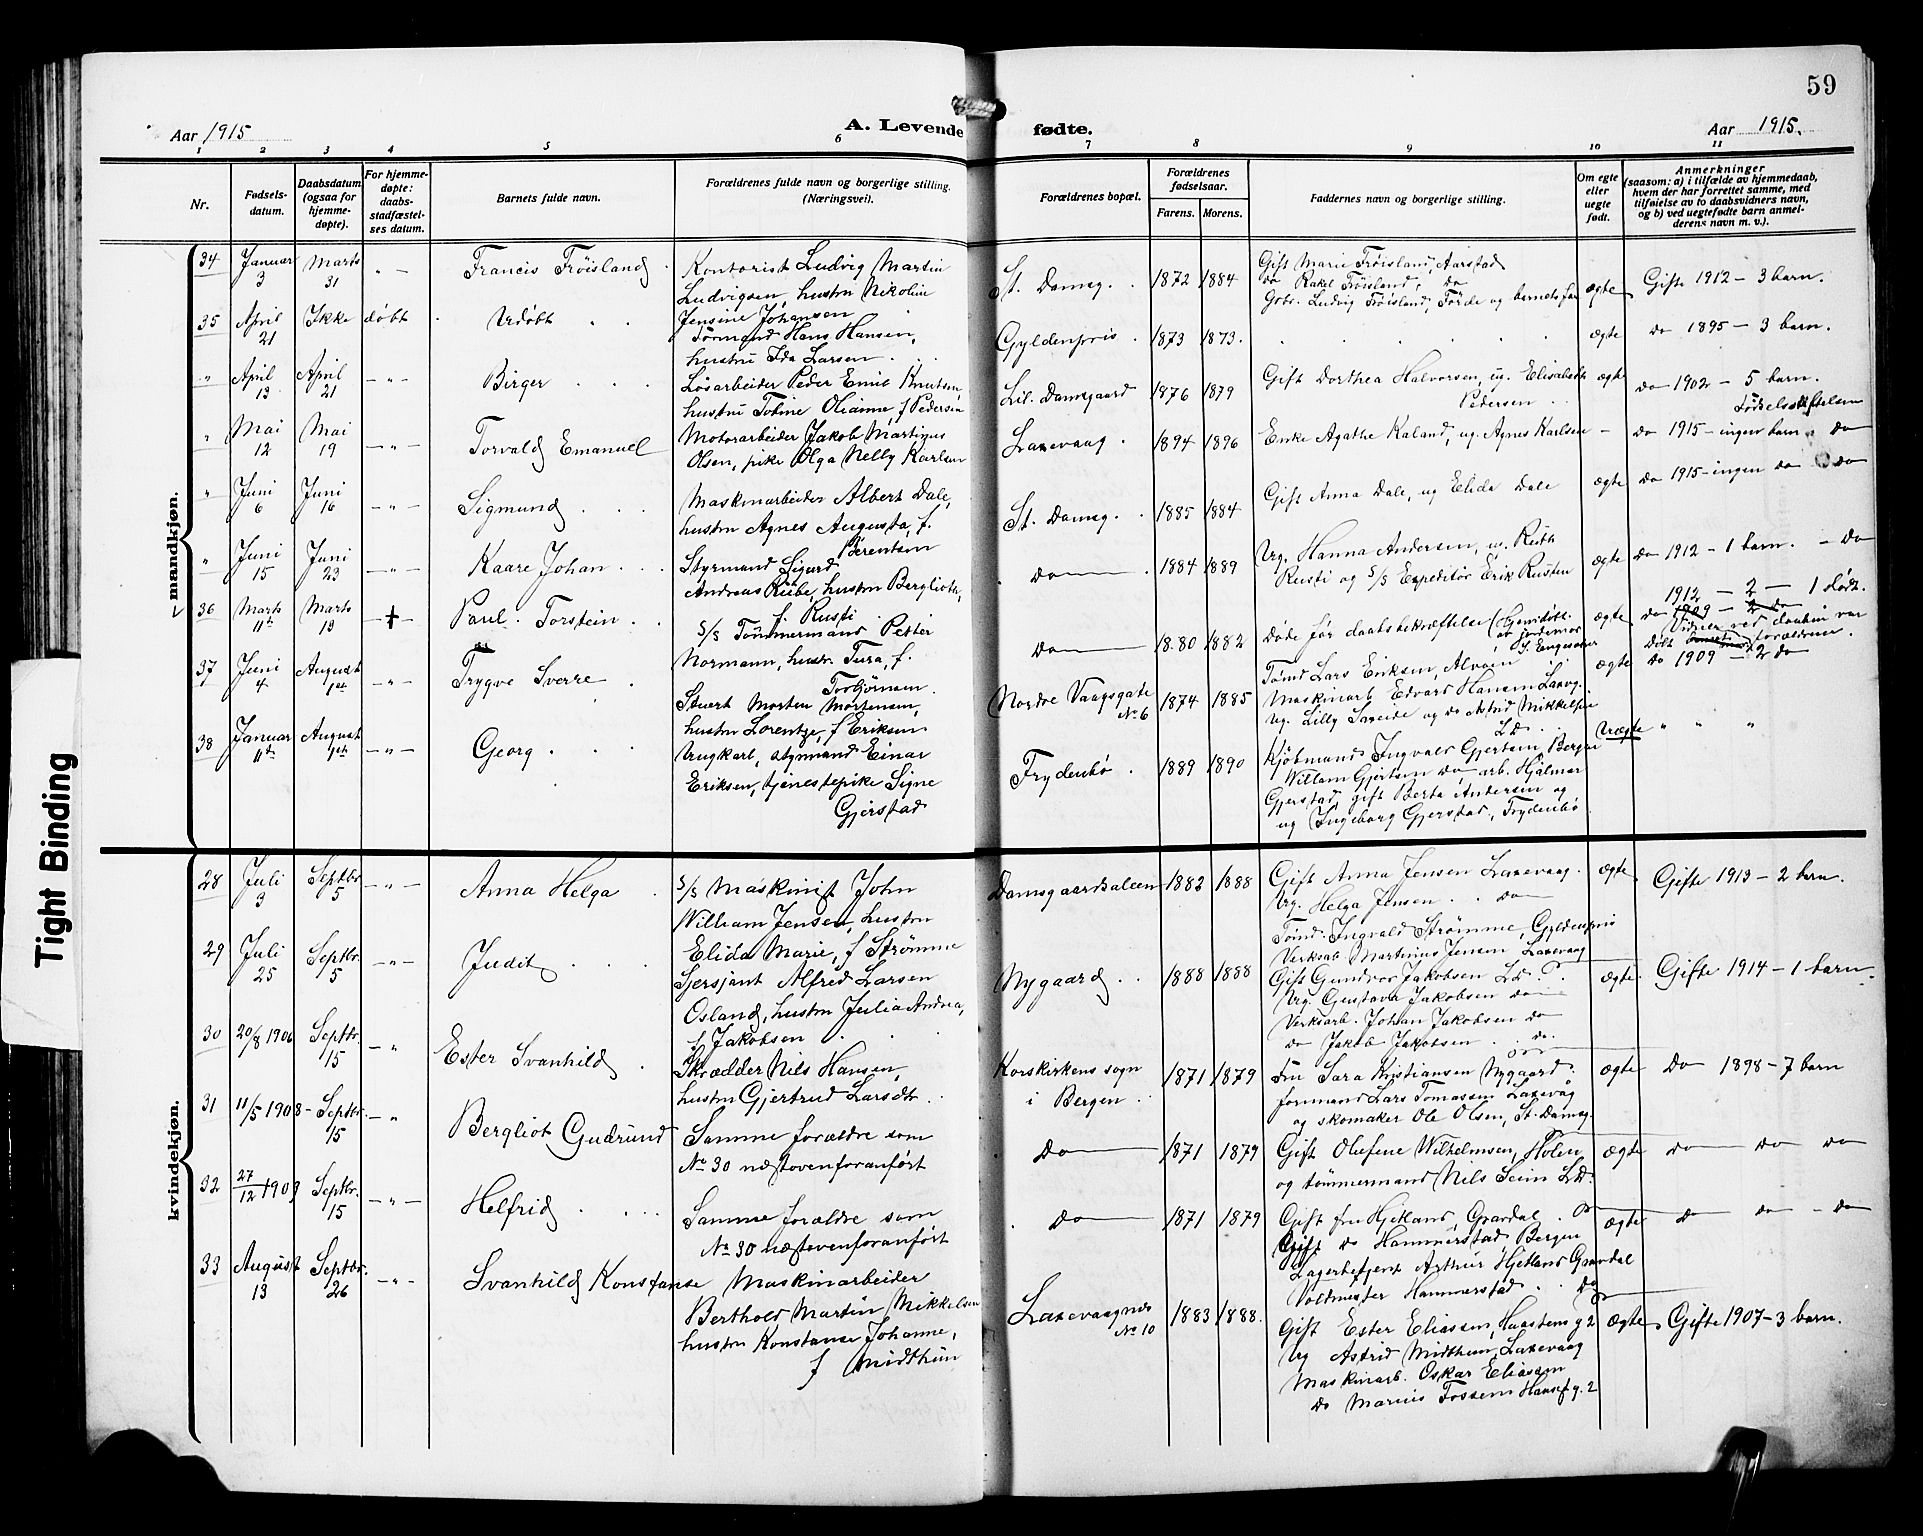 59
Aar 1915
A. Levende fødte.
Aar 1915.
1 2 3 4 5 6 7 8 9 10 11
Nr.
Fødsels-
datum.
Daabsdatum
(ogsaa for
hjemme-
døpte).
For hjemme-
døpte:
daabs-
stadfæstel-
ses datum.
Barnets fulde navn.
Forældrenes fulde navn og borgerlige stilling.
(Næringsvei).
Forældrenes bopæl.
Forældrenes
fødselsaar.
Farens. Morens.
Faddernes navn og borgerlige stilling.
Om egte
eller
uegte
født.
Anmerkninger
(saasom: a) i tilfælde av hjemmedaab,
hvem der har forrettet samme, med
tilføielse av to daabsvidners navn,
og b) ved uegtefødte barn anmel-
derens navn m. v.).
mandkjøn.
34 Januar 3 Marts 31 " – Francis Frøisland
Kontorist Ludvig Martin
Ludvigsen, hustru Nikoline
Jensine Johansen
St. Damsg. 1872 1884
Gift Marie Frøisland, Aarstad
do Rakel Frøisland, do
Grbr. Ludvig Frøisland, Førde og barnets far
ægte Gifte 1912 – 3 barn.
35 April 21 Ikke døbt Udøbt
Tørmand Hans Hansen,
hustru Ida Larsen
Gyldenpris 1873 1873.
ægte do 1895 – 3 barn.
" April 13 April 21 – " – Birger
Løsarbeider Peder Emil Knutsen
hustru Tobine Olianne f Pedersen
Lil. Damsgaard 1876 1879
Gift Dorthea Halvorsen, ug. Elisabeth
Pedersen
ægte do 1902 – 5 barn.
Fødselsstiftelsen
" Mai 12 Mai 19 – " – Torvald Emanuel
Motorarbeider Jakob Martinus
Olsen, pike Olga Nelly Karlsen
Laxevaag 1894 1896
Enke Agathe Kaland, ug. Agnes Karlsen
– do 1915 – ingen barn do
" Juni 6 Juni 16 – " – Sigmund
Maskinarbeider Albert Dale,
hustru Agnes Augusta, f.
Berentsen
St. Damsg. 1885 1884
Gift Anna Dale, ug Elida Dale
ægte do 1915 – ingen do do
" Juni 15 Juni 23 – " – Kaare Johan
Styrmand Sigurd
Andreas Rübe, hustru Bergliot,
f. Rusti
do 1884 1889
Ug. Hanna Andersen, u. Ruth
Rusti og S/S Expeditør Erik Rusten
ægte do 1912 – 1 barn. – do
36 Marts 11te Marts 19 – † – Paul Torstein
S/S Tømmermand Petter
Normann, hustr. Tura, f.
Torbjörnsen
do 1880 1882
Døde før daabsbekræftelse (Hjemdøbt
av jordemor
J. Engesæter
ægte 1912 – 2 – 1 død.
do 1909 – 2 do
Vidner ved daaben var
Døbt forældrene.
37 Juni 4 August 1ste – " – Trygve Sverre
Stuert Morten Mortensen,
hustru Lorentze, f Eriksen
Nordre Vaagsgate
No. 6 1874 1885
Tømd Lars Eriksen, Alvøen
Maskinarb Edvard Hansen Laxvg.
Ug. Lilly Sæveide og do Astrid Mikkelsen
Ld
ægte do 1909 – 2 do
38 Januar 11te August 1ste – " – Georg
Ungkarl, styrmand Einar
Eriksen, tjenestepike Signe
Gjerstad
Frydenbø 1889 1890
Kjöbmand Ingvald Gjertsen, Bergen
William Gjertsen do, arb. Hjalmar
Gjerstad, gift Berta Andersen og
ug Ingeborg Gjerstad, Frydenbø
Uægte " " "
kvindekjøn.
28 Juli 3 Septbr. 5 – " – Anna Helga
S/S Maskinist John
William Jensen, hustru
Elida Marie, f Strømme
Damsgaardsaleen 1882 1888
Gift Anna Jensen Laxevaag
Ug. Helga Jensen do
Tømd. Ingvald Strømme, Gyldenpris
Verksab. Martinus Jensen Laxevaag
ægte Gifte 1913 – 2 barn.
29 Juli 25 Septbr. 5 – " – Judit
Sjersjant Alfred Larsen
Osland, hustru Julia Andrea,
f Jakobsen
Nygaard 1888 1888
Gift Gundros Jakobsen Ld
Ug. Gustava Jakobsen do
Verksarb. Johan Jakobsen do
do Jakob Jakobsen do.
ægte Gifte 1914 – 1 barn.
30 20/8 1906 Septbr. 15 – " Ester Svanhild
Skrædder Nils Hansen,
hustru Gjertrud Larsdtr.
Korskirkens sogn
i Bergen 1871 1879
Fru Sara Kristiansen Nygaard
formand Lars Tomassen Laxevaag
og skomaker Ole Olsen, St. Damsg.
ægte do 1898 – 7 barn
31 11/5 1908 – Septbr. 15 – " Bergliot Gudrund
Samme forældre som
No 30 næstovenforanført
do 1871 1879
Gift Olufine Wilhelmsen, Holen
og tömmermand Nils Seim Ld.
ægte do do do
32 27/12 1909 Septbr. 15 – " – Helfrid
Samme forældre som
No 30 næstovenforanført
do 1871 1879
Gift fru Hjetland, Gravdal
Gift do Hammerstad Bergen
Lagerbetjent Arthur Hjetland Gravdal
Voldmester Hammerstad do
ægte do do – do
33 August 13 Septbr. 26 – " – Svanhild Konstanse
Maskinarbeider
Berthold Martin Mikkelsen
hustru Konstanse Johanne,
f Midthun
Laxevaagnes
No 10 1883 1888.
Gift Ester Eliassen, Haastens g 2
Ug Astrid Midthun, Laxevaag
Maskinarb. Oskar Eliassen
do Marius Fossem Hansef g. 2
ægte Gifte 1907 – 3 barn.
Tight Binding